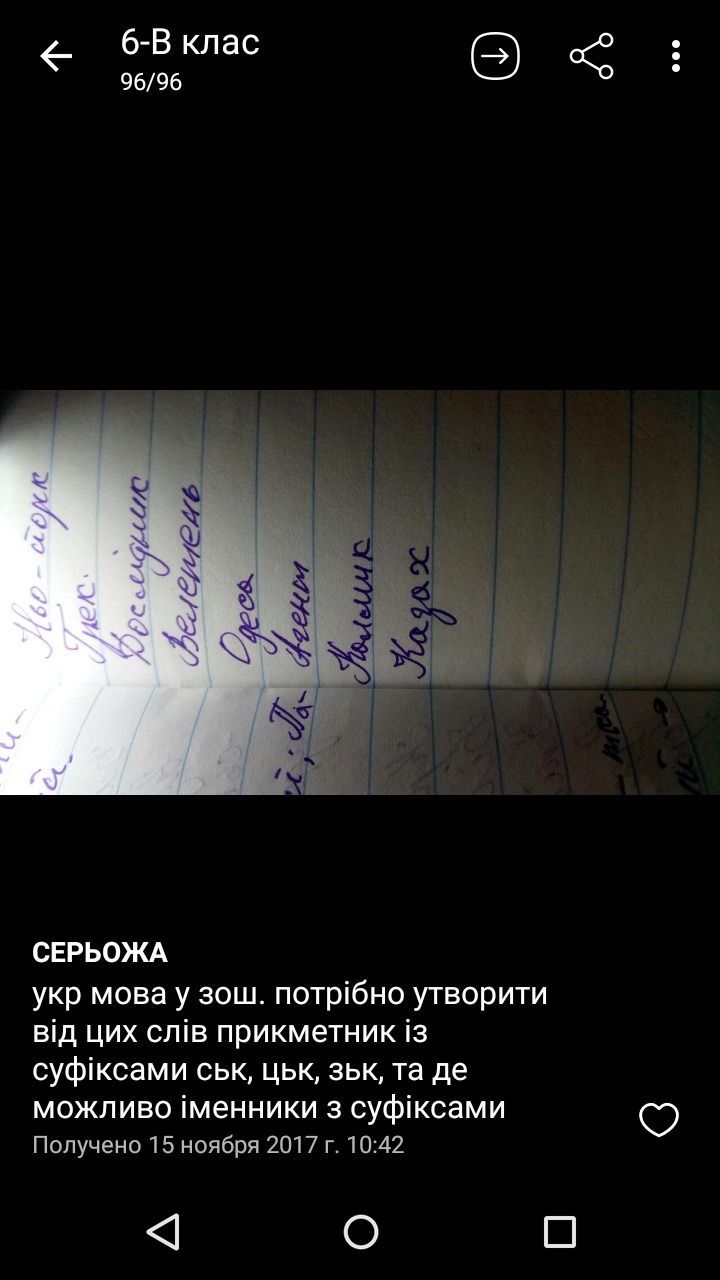 6-В клас
96/96
Нью-йорк
Грек.
Дослідник
Велетень
Одеса
Агент
Калмик
Казах
СЕРЬОЖА
укр мова у зош. потрібно утворити
від цих слів прикметник із
суфіксами ськ, цьк, зьк, та де
можливо іменники з суфіксами
Получено 15 ноября 2017 г. 10:42